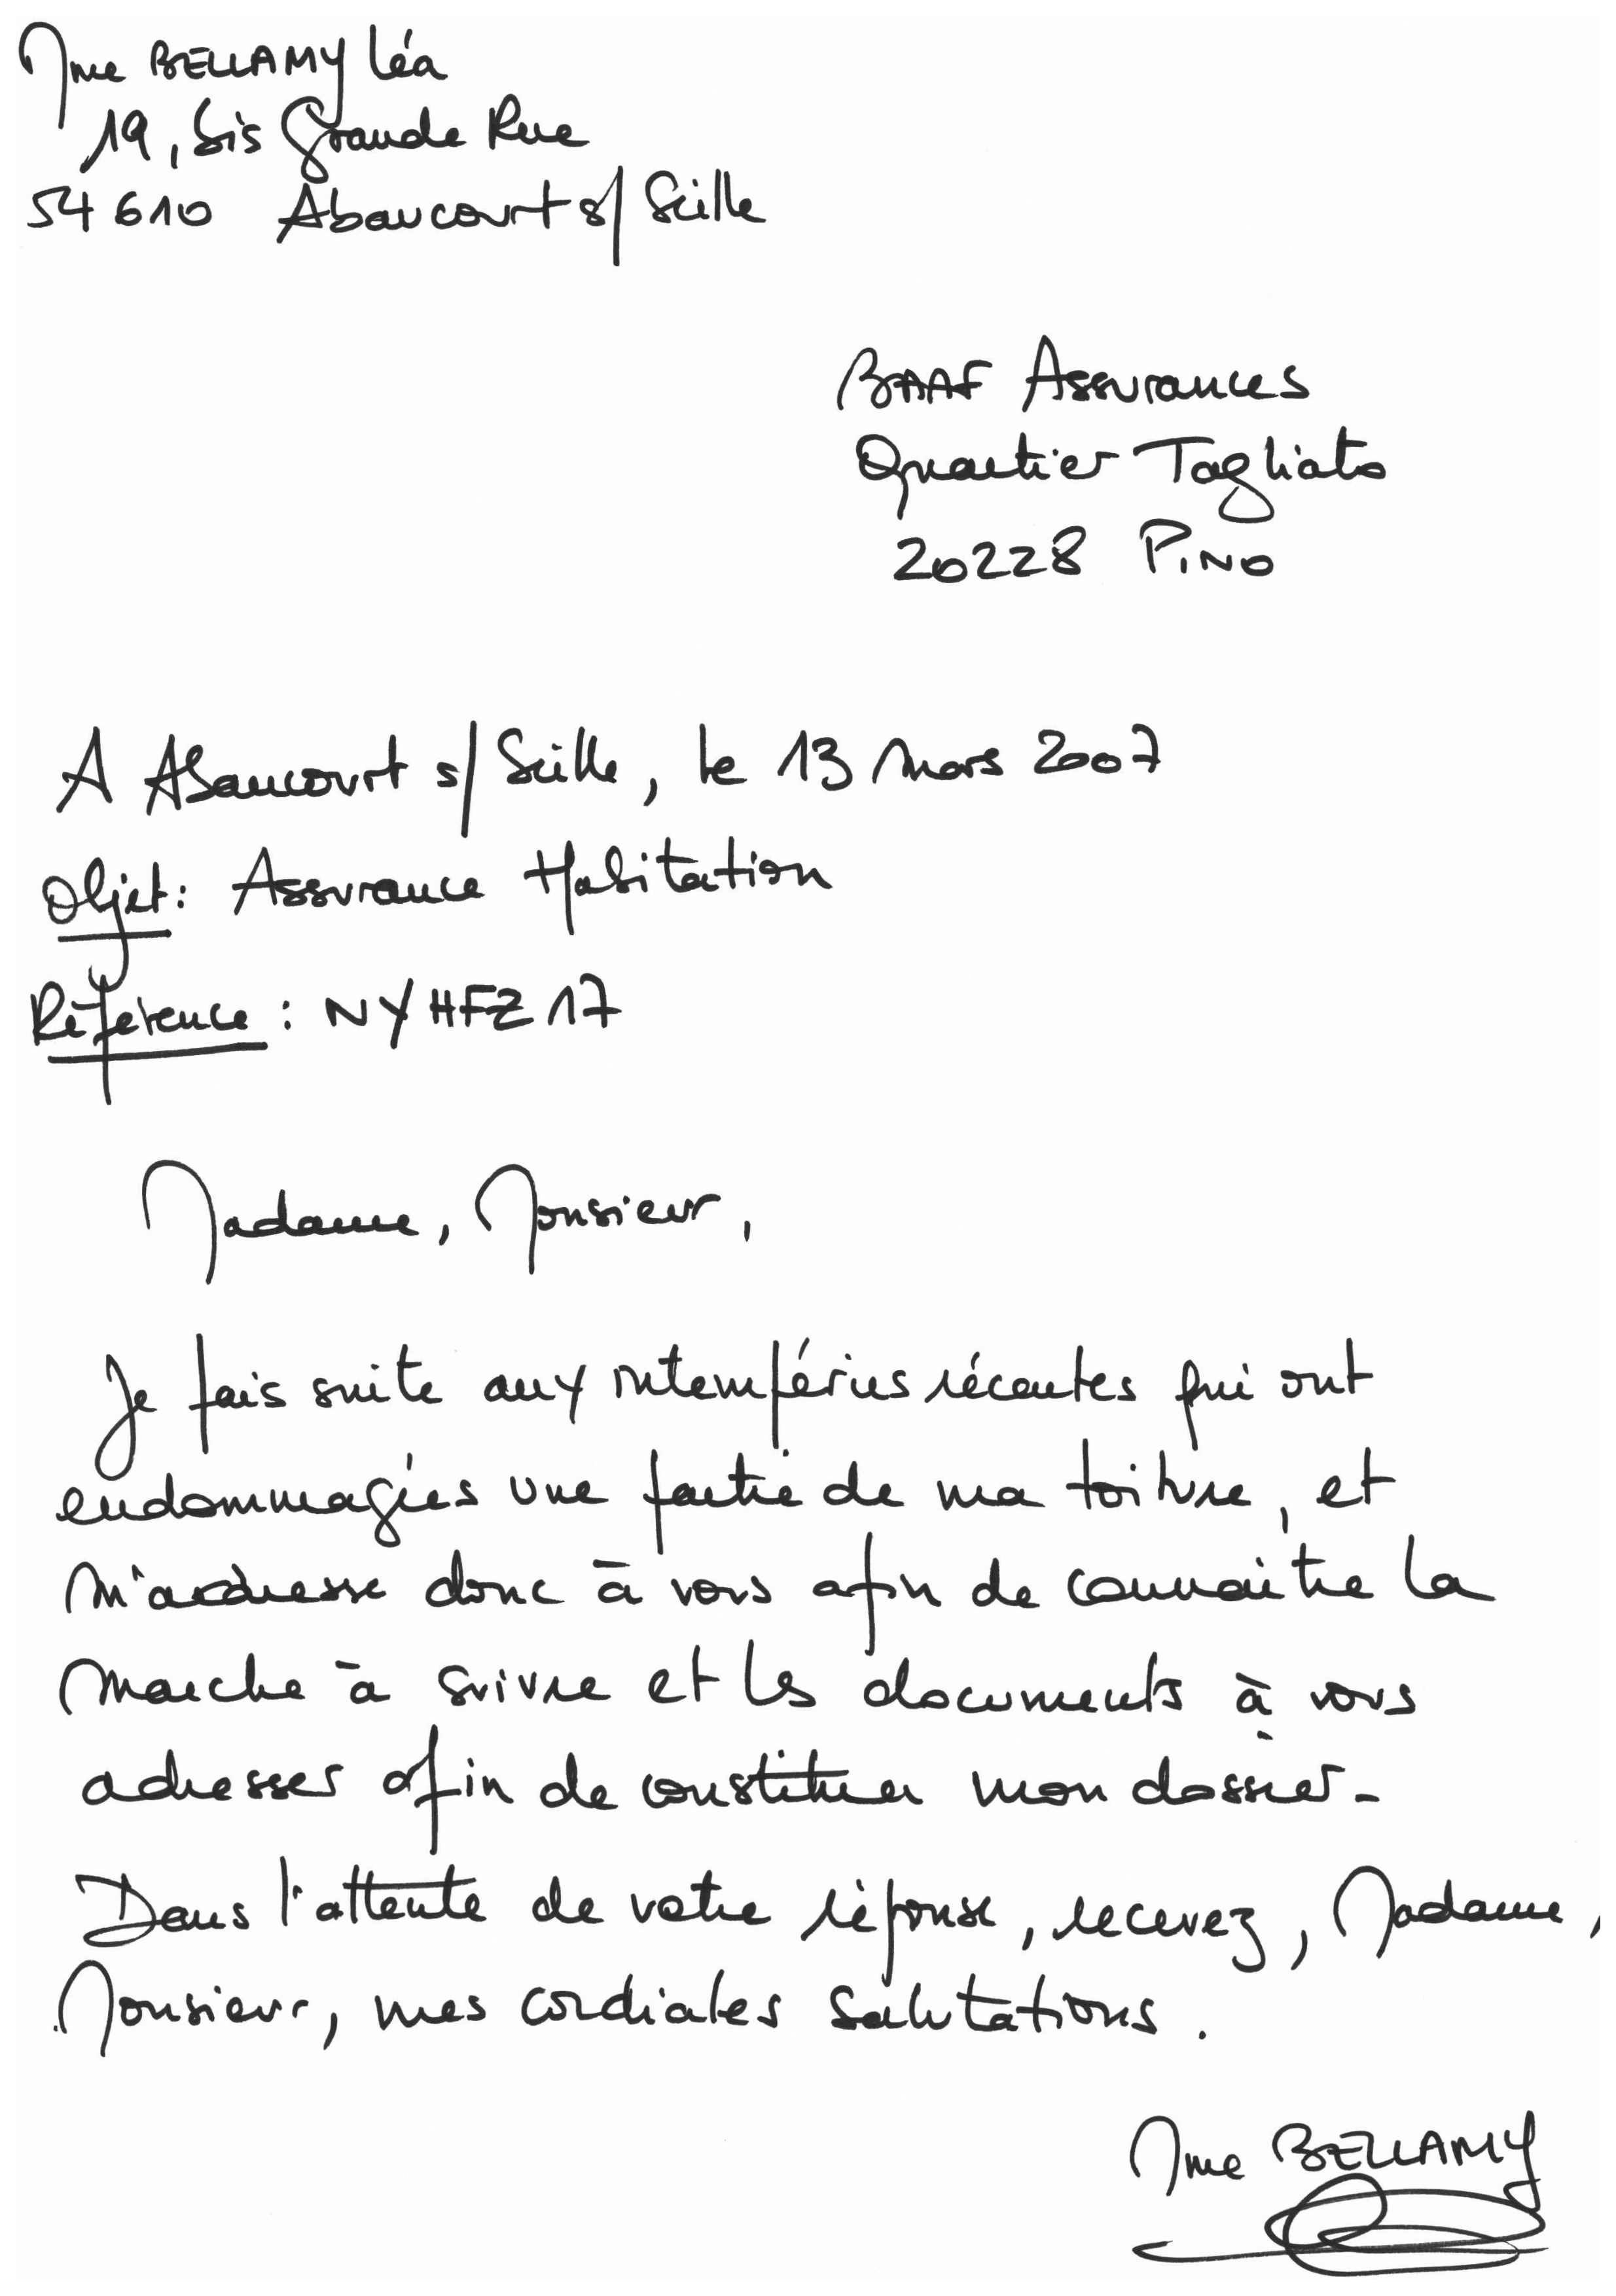 Mme BELLAMY Léa
19, bis Grande Rue
54610 Abaucourt s/ Seille
BAAF Assurances
Quartier Tagliato
20228 PINO
A Abaucourt s/ Seille, le 13 Mars 2007
Objet : Assurance Habitation
Référence : NYHFZ17
Madame, Monsieur,
Je fais suite aux intempéries récentes qui ont
endommagées une partie de ma toiture, et
m'adresse donc à vous afin de connaître la
marche à suivre et les documents à vous
adresser afin de constituer mon dossier.
Dans l'attente de votre réponse, recevez, Madame,
Monsieur, mes cordiales salutations.
Mme BELLAMY